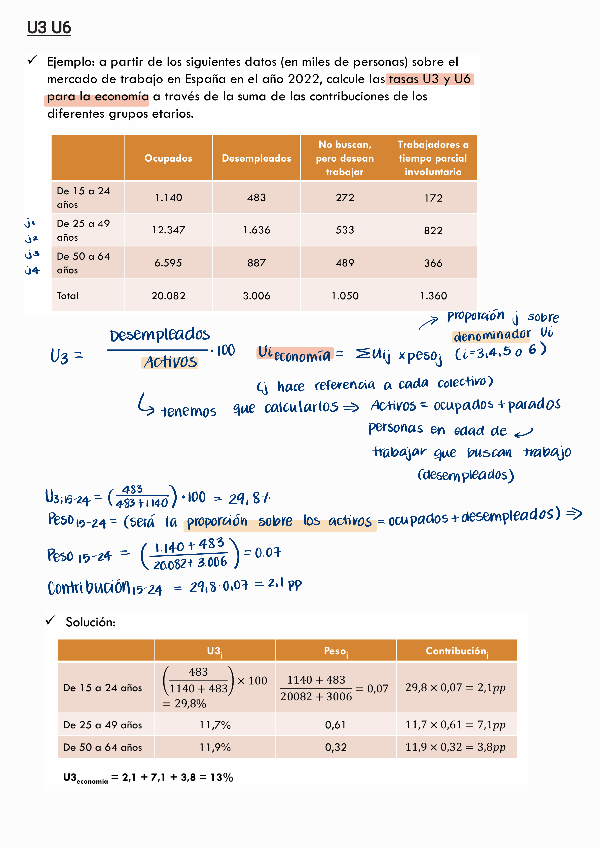 U3 U6
✓ Ejemplo: a partir de los siguientes datos (en miles de personas) sobre el
mercado de trabajo en España en el año 2022, calcule las tasas U3 y U6
para la economía a través de la suma de las contribuciones de los
diferentes grupos etarios.
Ocupados Desempleados No buscan, pero desean trabajar Trabajadores a tiempo parcial involuntario
De 15 a 24 años 1.140 483 272 172
j1 De 25 a 49 años 12.347 1.636 533 822
j2
j3 De 50 a 64 años 6.595 887 489 366
j4
Total 20.082 3.006 1.050 1.360
→ proporción j sobre
denominador Ui
U3 = Desempleados / Activos · 100 Ui economía = Σuij x pesoj (i=3,4,5 o 6)
(j hace referencia a cada colectivo)
↳ tenemos que calcularlos ⇒ Activos = ocupados + parados
personas en edad de
trabajar que buscan trabajo
(desempleados)
U3;15-24 = (483 / 483+1140) · 100 = 29,8%
Peso 15-24 = (será la proporción sobre los activos = ocupados + desempleados) ⇒
Peso 15-24 = (1.140 + 483 / 20.082 + 3.006) = 0.07
Contribución 15-24 = 29,8 · 0,07 = 2,1 pp
✓ Solución:
U3j Pesoj Contribuciónj
De 15 a 24 años (483 / 1140 + 483) × 100 = 29,8% 1140 + 483 / 20082 + 3006 = 0,07 29,8 × 0,07 = 2,1pp
De 25 a 49 años 11,7% 0,61 11,7 × 0,61 = 7,1pp
De 50 a 64 años 11,9% 0,32 11,9 × 0,32 = 3,8pp
U3economía = 2,1 + 7,1 + 3,8 = 13%